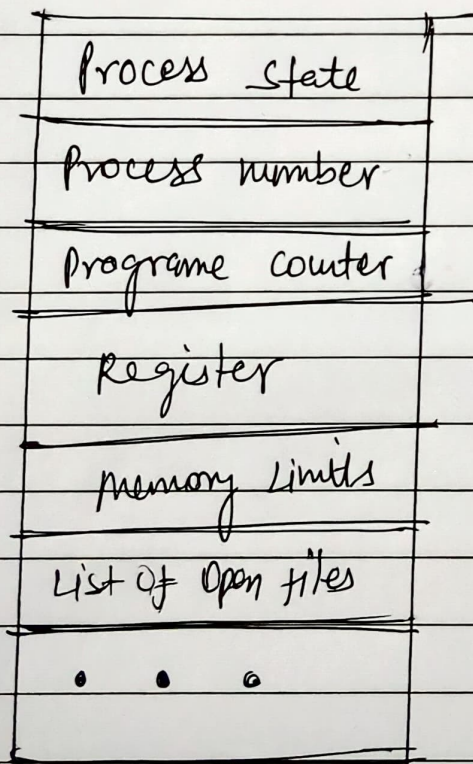 Process state
Process number
Programe counter
Register
Memory Limits
List Of Open files
• • •